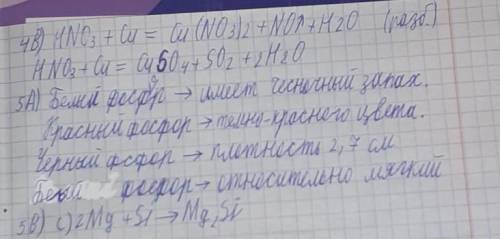 4В) HNO3 + Cu = Cu(NO3)2 + NO↑ + H2O (разб.)
HNO3 + Cu = CuSO4 + SO2 + 2H2O
5А) Белый фосфор → имеет чесночный запах.
Красный фосфор → темно-красного цвета.
Черный фсфор → плотность 2,7 см
Белый фосфор → относительно мягкий
5В) с) 2Mg + Si → Mg2Si